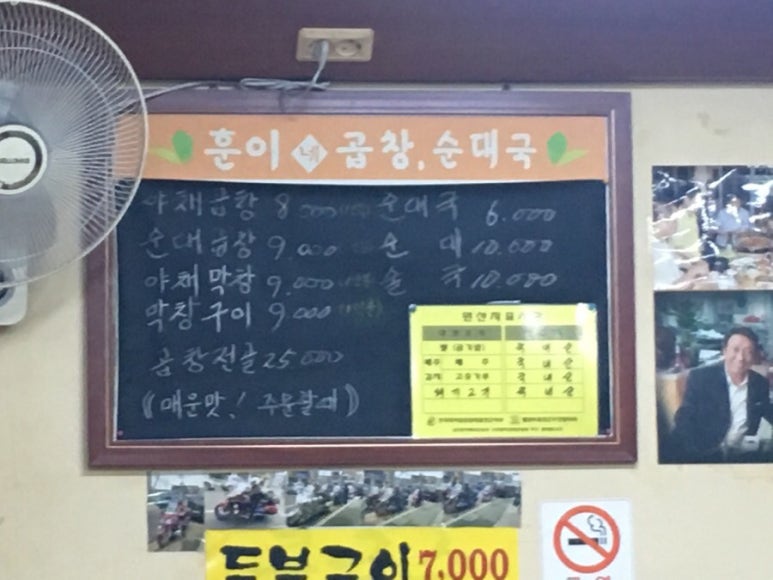 훈이네 곱창, 순대국
야채곱창 8000 순대국 6.000
순대곱창 9,000 순 대 10.000
야채막창 9,000 술 국 10,000
막창구이 9000
곱창전골 25000
(매운맛! 주문할때)
원산지표시판
쌀 (공기밥) 국내산
배추 국내산
김치 고춧가루 국내산
돼지고기 국내산
두부구이 7,000